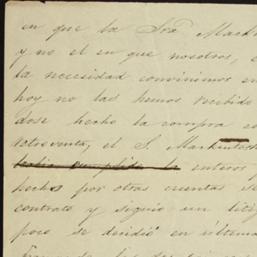 en que la Sra Mackin
y no el en que nosotros,
la necesidad convinimos en
hoy no las hemos recibido
dose hecho la compra
retroventa, el S. Mackintosh
había cumplido la enteros
hechos por otras cuentas
contrato y siguio un liti
poco se decidió en última